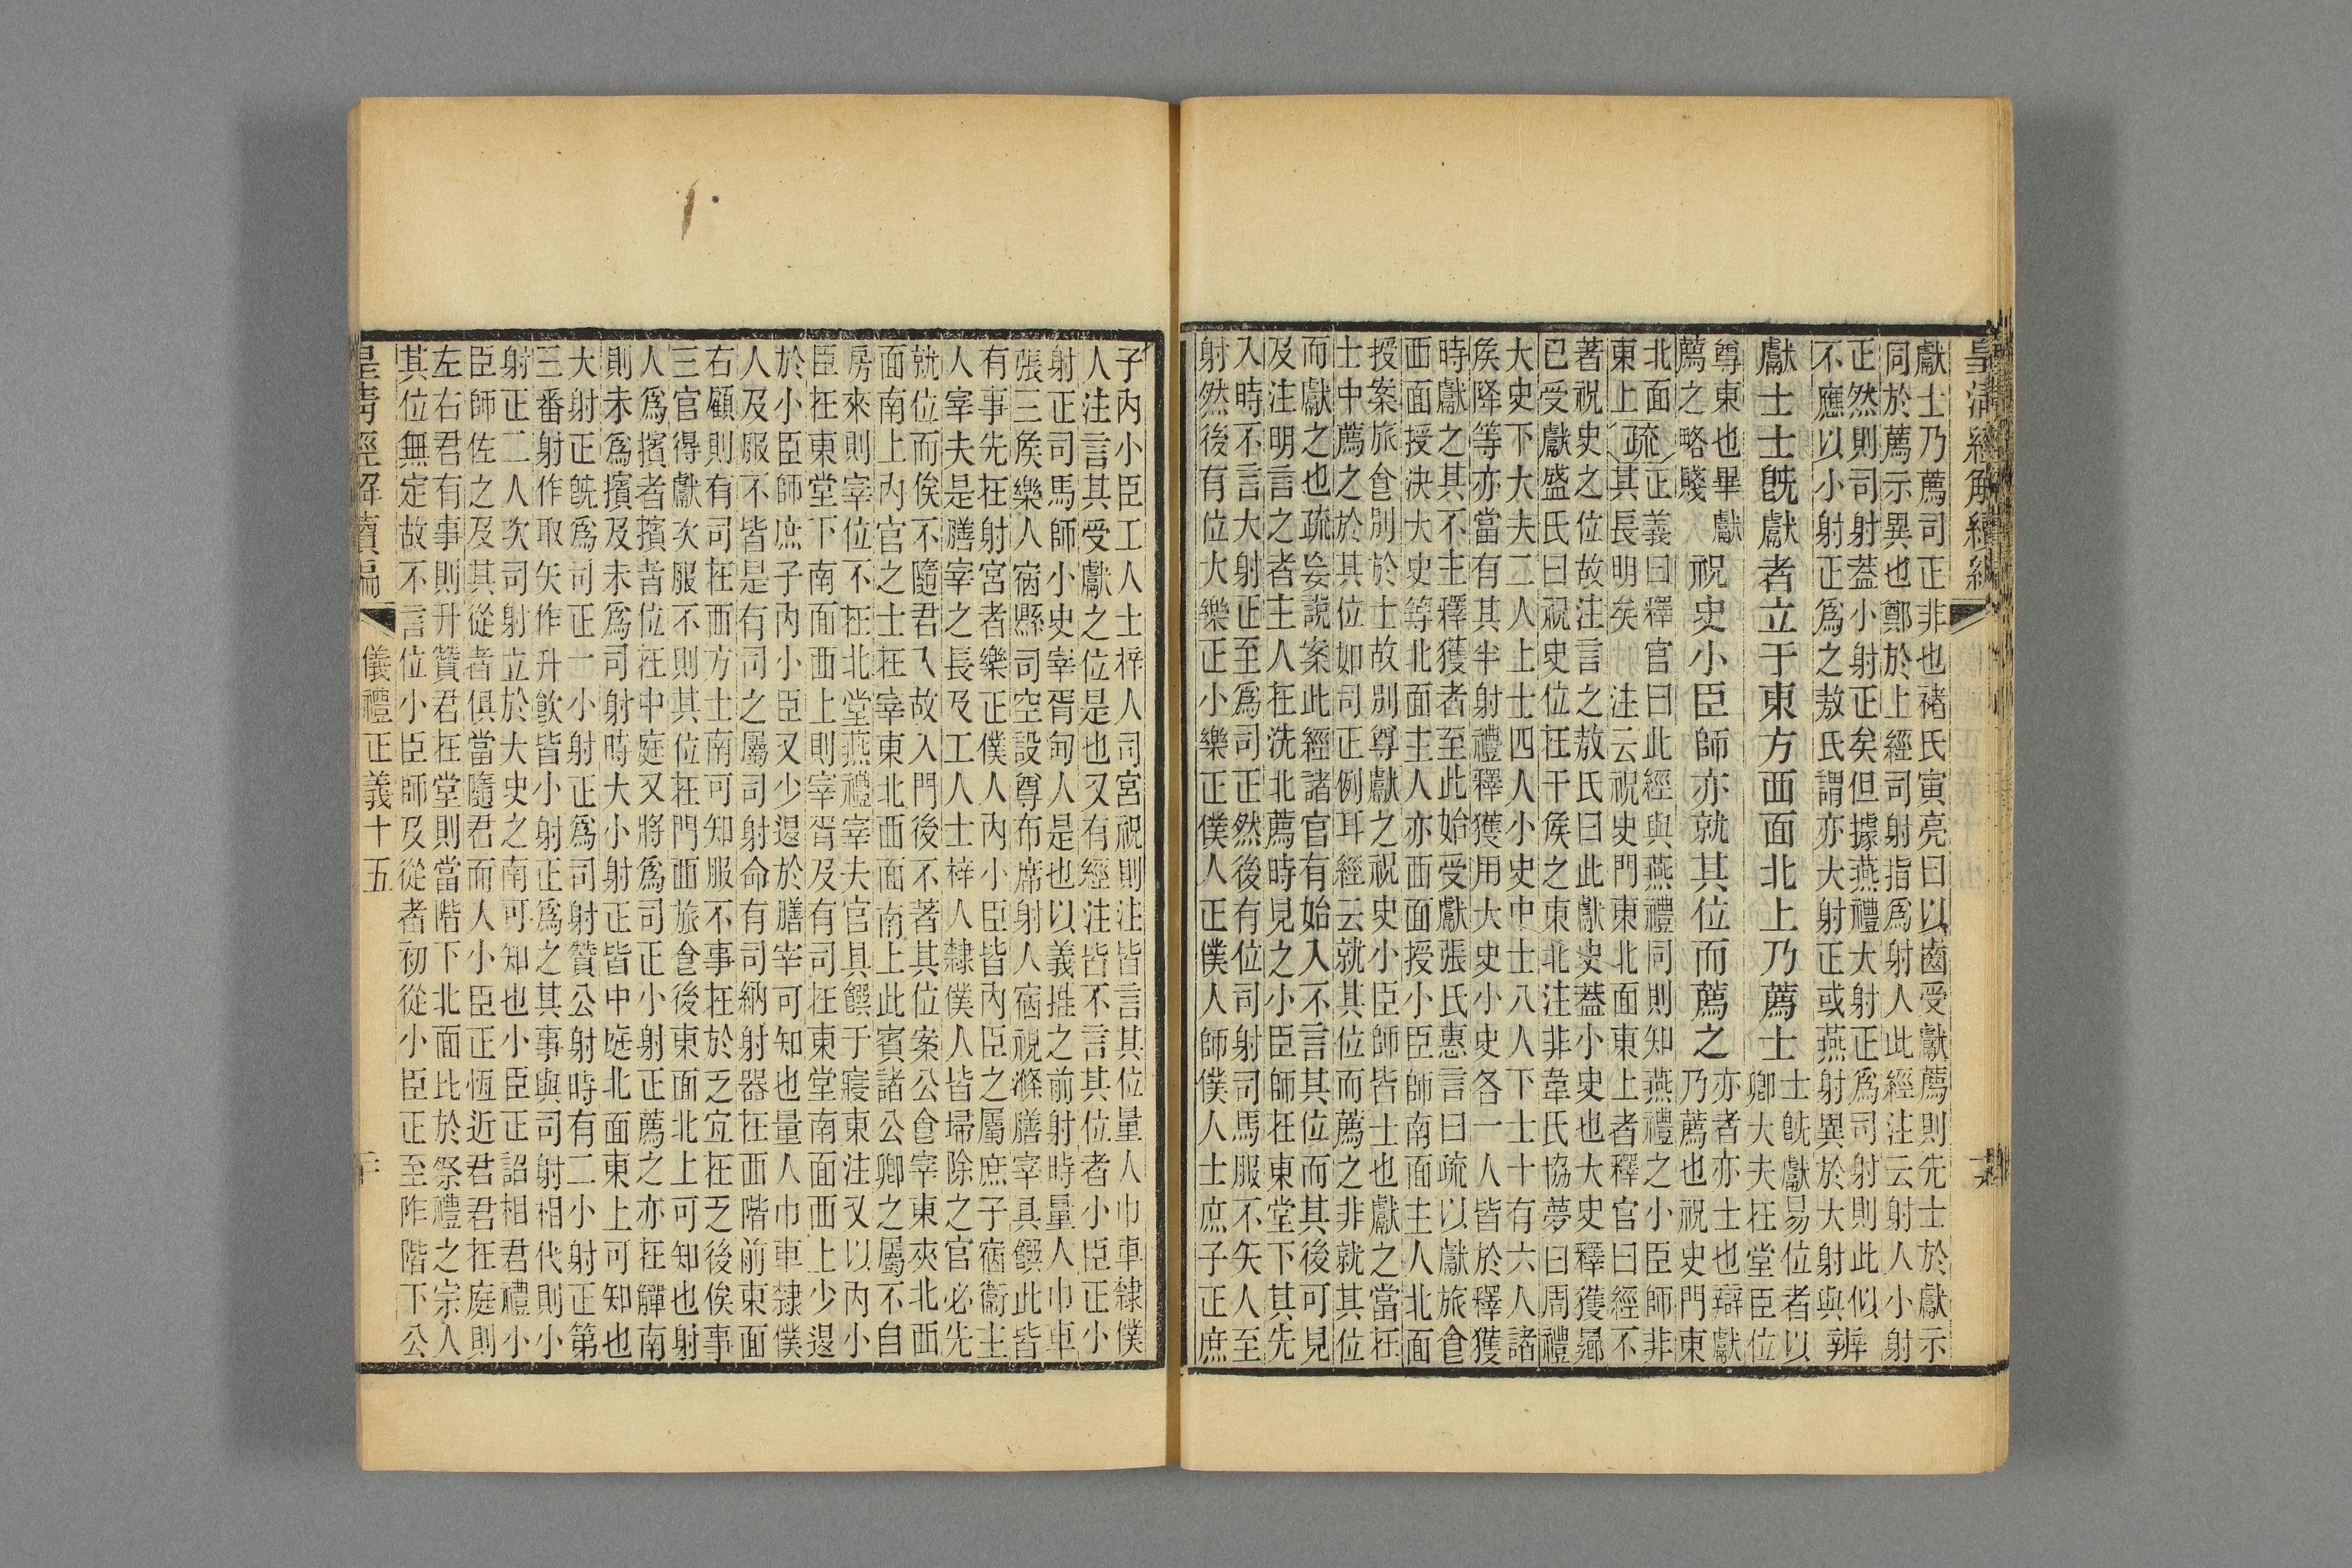 皇清經解續編
獻士乃薦司正非也褚氏寅亮曰以齒受獻薦則先士於獻示
同於薦示異也鄭於上經司射指爲射人此經注云射人小射
正然則司射葢小射正矣但據燕禮大射正爲司射則此似
不應以小射正爲之敖氏謂亦大射正或燕射異於大射與
辨
獻士士旣獻者立于東方西面北上乃薦士
士旣獻易位者以
卿大夫在堂臣位
尊東也畢獻
薦之略賤
祝史小臣師亦就其位而薦之
亦者亦士也辯獻
乃薦也祝史門東
北面
東上
疏
正義曰釋官曰此經與燕禮同則知燕禮之小臣師非
其長明矣 注云祝史門東北面東上者釋官曰經不
著祝史之位故注言之敖氏曰此獻史葢小史也大史釋獲鄉
已受獻盛氏曰祝史位在干矦之東北注非韋氏協夢曰周禮
大史下大夫二人上士四人小史中士八人下士十有六人諸
矦降等亦當有其半射禮釋獲用大史小史各一人皆於釋獲
時獻之其不主釋獲者至此始受獻張氏惠言曰疏以獻旅食
西面授決大史等北面主人亦西面授小臣師南面主人北面
授案旅食別於士故別尊獻之祝史小臣師皆士也獻之當在
士中薦之於其位如司正例耳經云就其位而薦之非就其位
而獻之也疏妄說案此經諸官有始入不言其位而其後可見
及注明言之者主人在洗北薦時見之小臣師在東堂下其先
入時不言大射正至爲司正然後有位司射司馬服不矢人至
射然後有位大樂正小樂正僕人正僕人師僕人士庶子正庶
子內小臣工人士梓人司宮祝則注皆言其位量人巾車隸僕
人注言其受獻之位是也又有經注皆不言其位者小臣正小
射正司馬師小史宰胥甸人是也以義推之前射時量人巾車
張三矦樂人宿縣司空設尊布席射人宿視滌膳宰具饌此皆
有事先在射宮者樂正僕人內小臣皆內臣之屬庶子宿衞主
人宰夫是膳宰之長及工人士梓人隸僕人皆埽除之官必先
就位而俟不隨君入故入門後不著其位案公食宰東夾北西
面南上內官之士在宰東北西面南上此賓諸公卿之屬不自
房來則宰位不在北堂燕禮宰夫官具饌于寢東注又以內小
臣在東堂下南面西上則宰胥及有司在東堂南面西上少退
於小臣師庶子內小臣又少退於膳宰可知也量人巾車隸僕
人及服不皆是有司之屬司射命有司納射器在西階前東面
右顧則有司在西方士南可知服不事在於乏宜在乏後俟事
三官得獻次服不則其位在門西旅食後東面北上可知也射
人爲擯者擯者位在中庭又將爲司正小射正薦之亦在觶南
則未爲擯及未爲司射時大小射正皆中庭北面東上可知也
大射正旣爲司正一小射正爲司射贊公射時有二小射正第
三番射作取矢作升飮皆小射正爲之其事與司射相代則小
射正二人次司射立於大史之南可知也小臣正詔相君禮小
臣師佐之及其從者俱當隨君而入小臣正恆近君君在庭則
左右君有事則升贊君在堂則當階下北面比於祭禮之宗人
其位無定故不言位小臣師及從者初從小臣正至阼階下公
皇清經解續編 儀禮正義十五